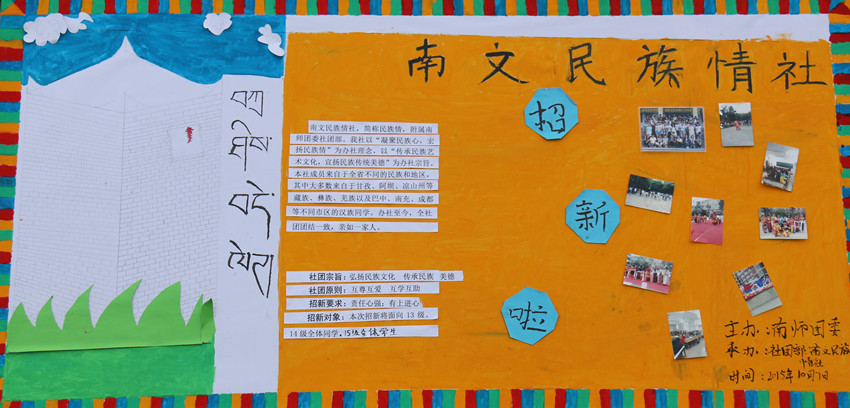 南文民族情社
招
新
啦
南文民族情社，简称民族情，附属南
师团委社团部。我社以“凝聚民族心，宏
扬民族情”为办社理念，以“传承民族艺
术文化，宣扬民族传统美德”为办社宗旨。
本社成员来自全省不同的民族和地区，
其中大多数来自于甘孜、阿坝、凉山州等
藏族、彝族、羌族以及巴中、南充、成都
等不同市区的汉族同学。办社至今，全社
团团结一致，亲如一家人。
社团宗旨：弘扬民族文化 传承民族 美德
社团原则：互尊互爱 互学互助
招新要求：责任心强；有上进心
招新对象：本次招新将面向 13 级、
14 级全体同学。15级全体学生
主办：南师团委
承办：社团部 南文民族
情社
时间：2015年10月1日